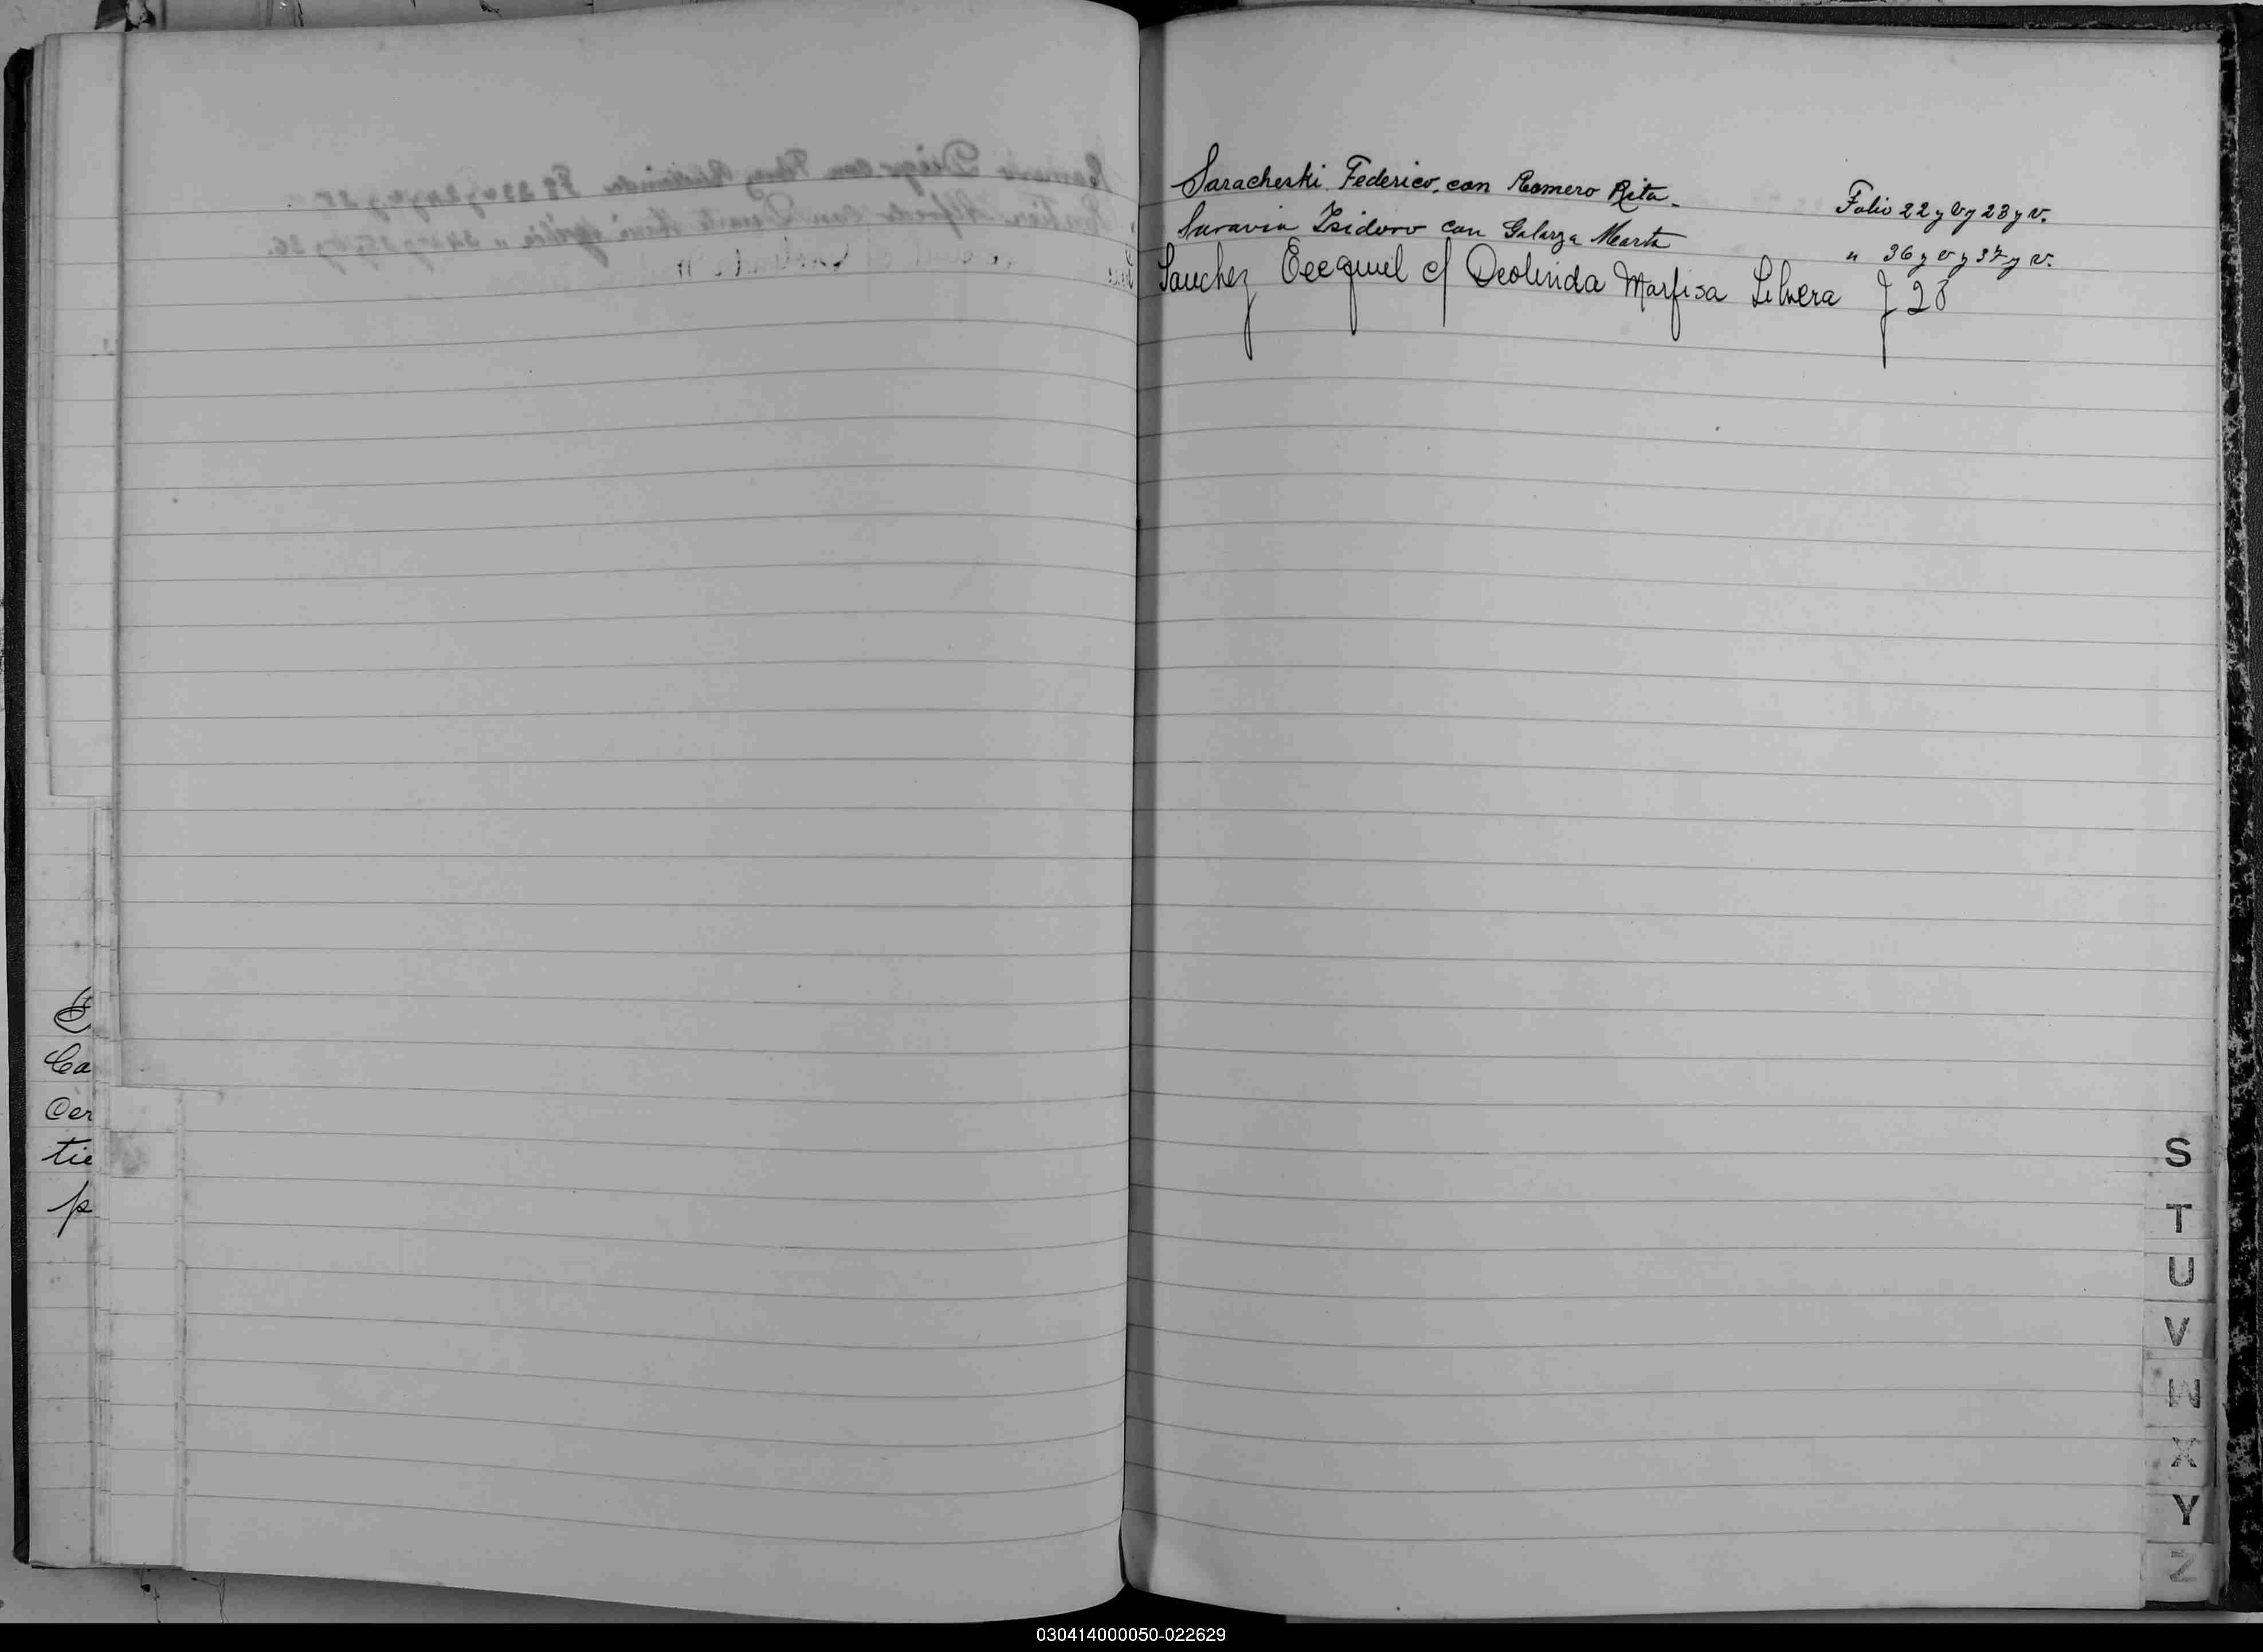 Saracheski Federico, con Romero Rita. Folio 22 y v y 23 y v.
Saravia Isidoro con Galarza Marta " 36 y v y 37 y v.
Sanchez Ecequiel c/ Deolinda Marfisa Silvera f 28
Ca
Cer
tie
p
S
T
U
V
W
X
Y
Z
030414000050-022629